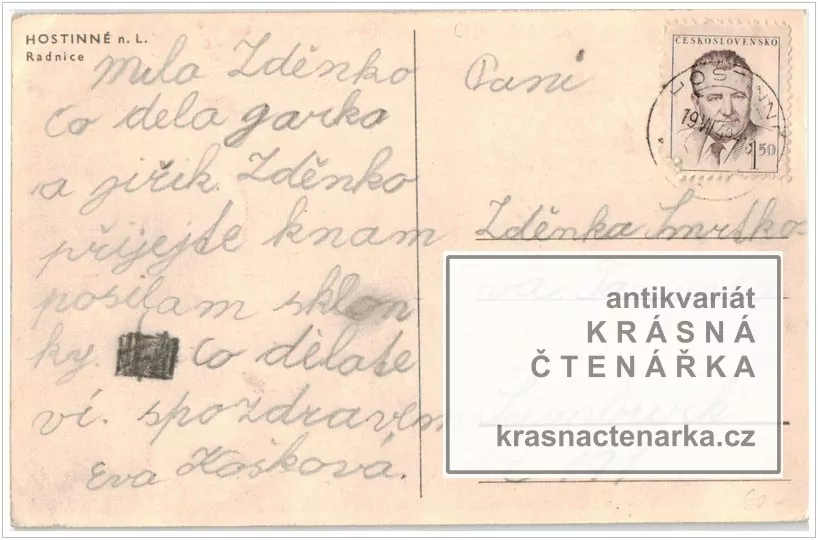 HOSTINNÉ n. L.
Radnice
Mila Zděnko
co dela garka
a jiřik. Zděnko
přijejte knam
posilam sklon
ky. Co dělate
ví. spozdravem
Eva Košková.
Paní
Zděnka Smrtko
ČESKOSLOVENSKO
1 50
HOSTINNÉ
antikvariát
KRÁSNÁ
ČTENÁŘKA
krasnactenarka.cz
60-